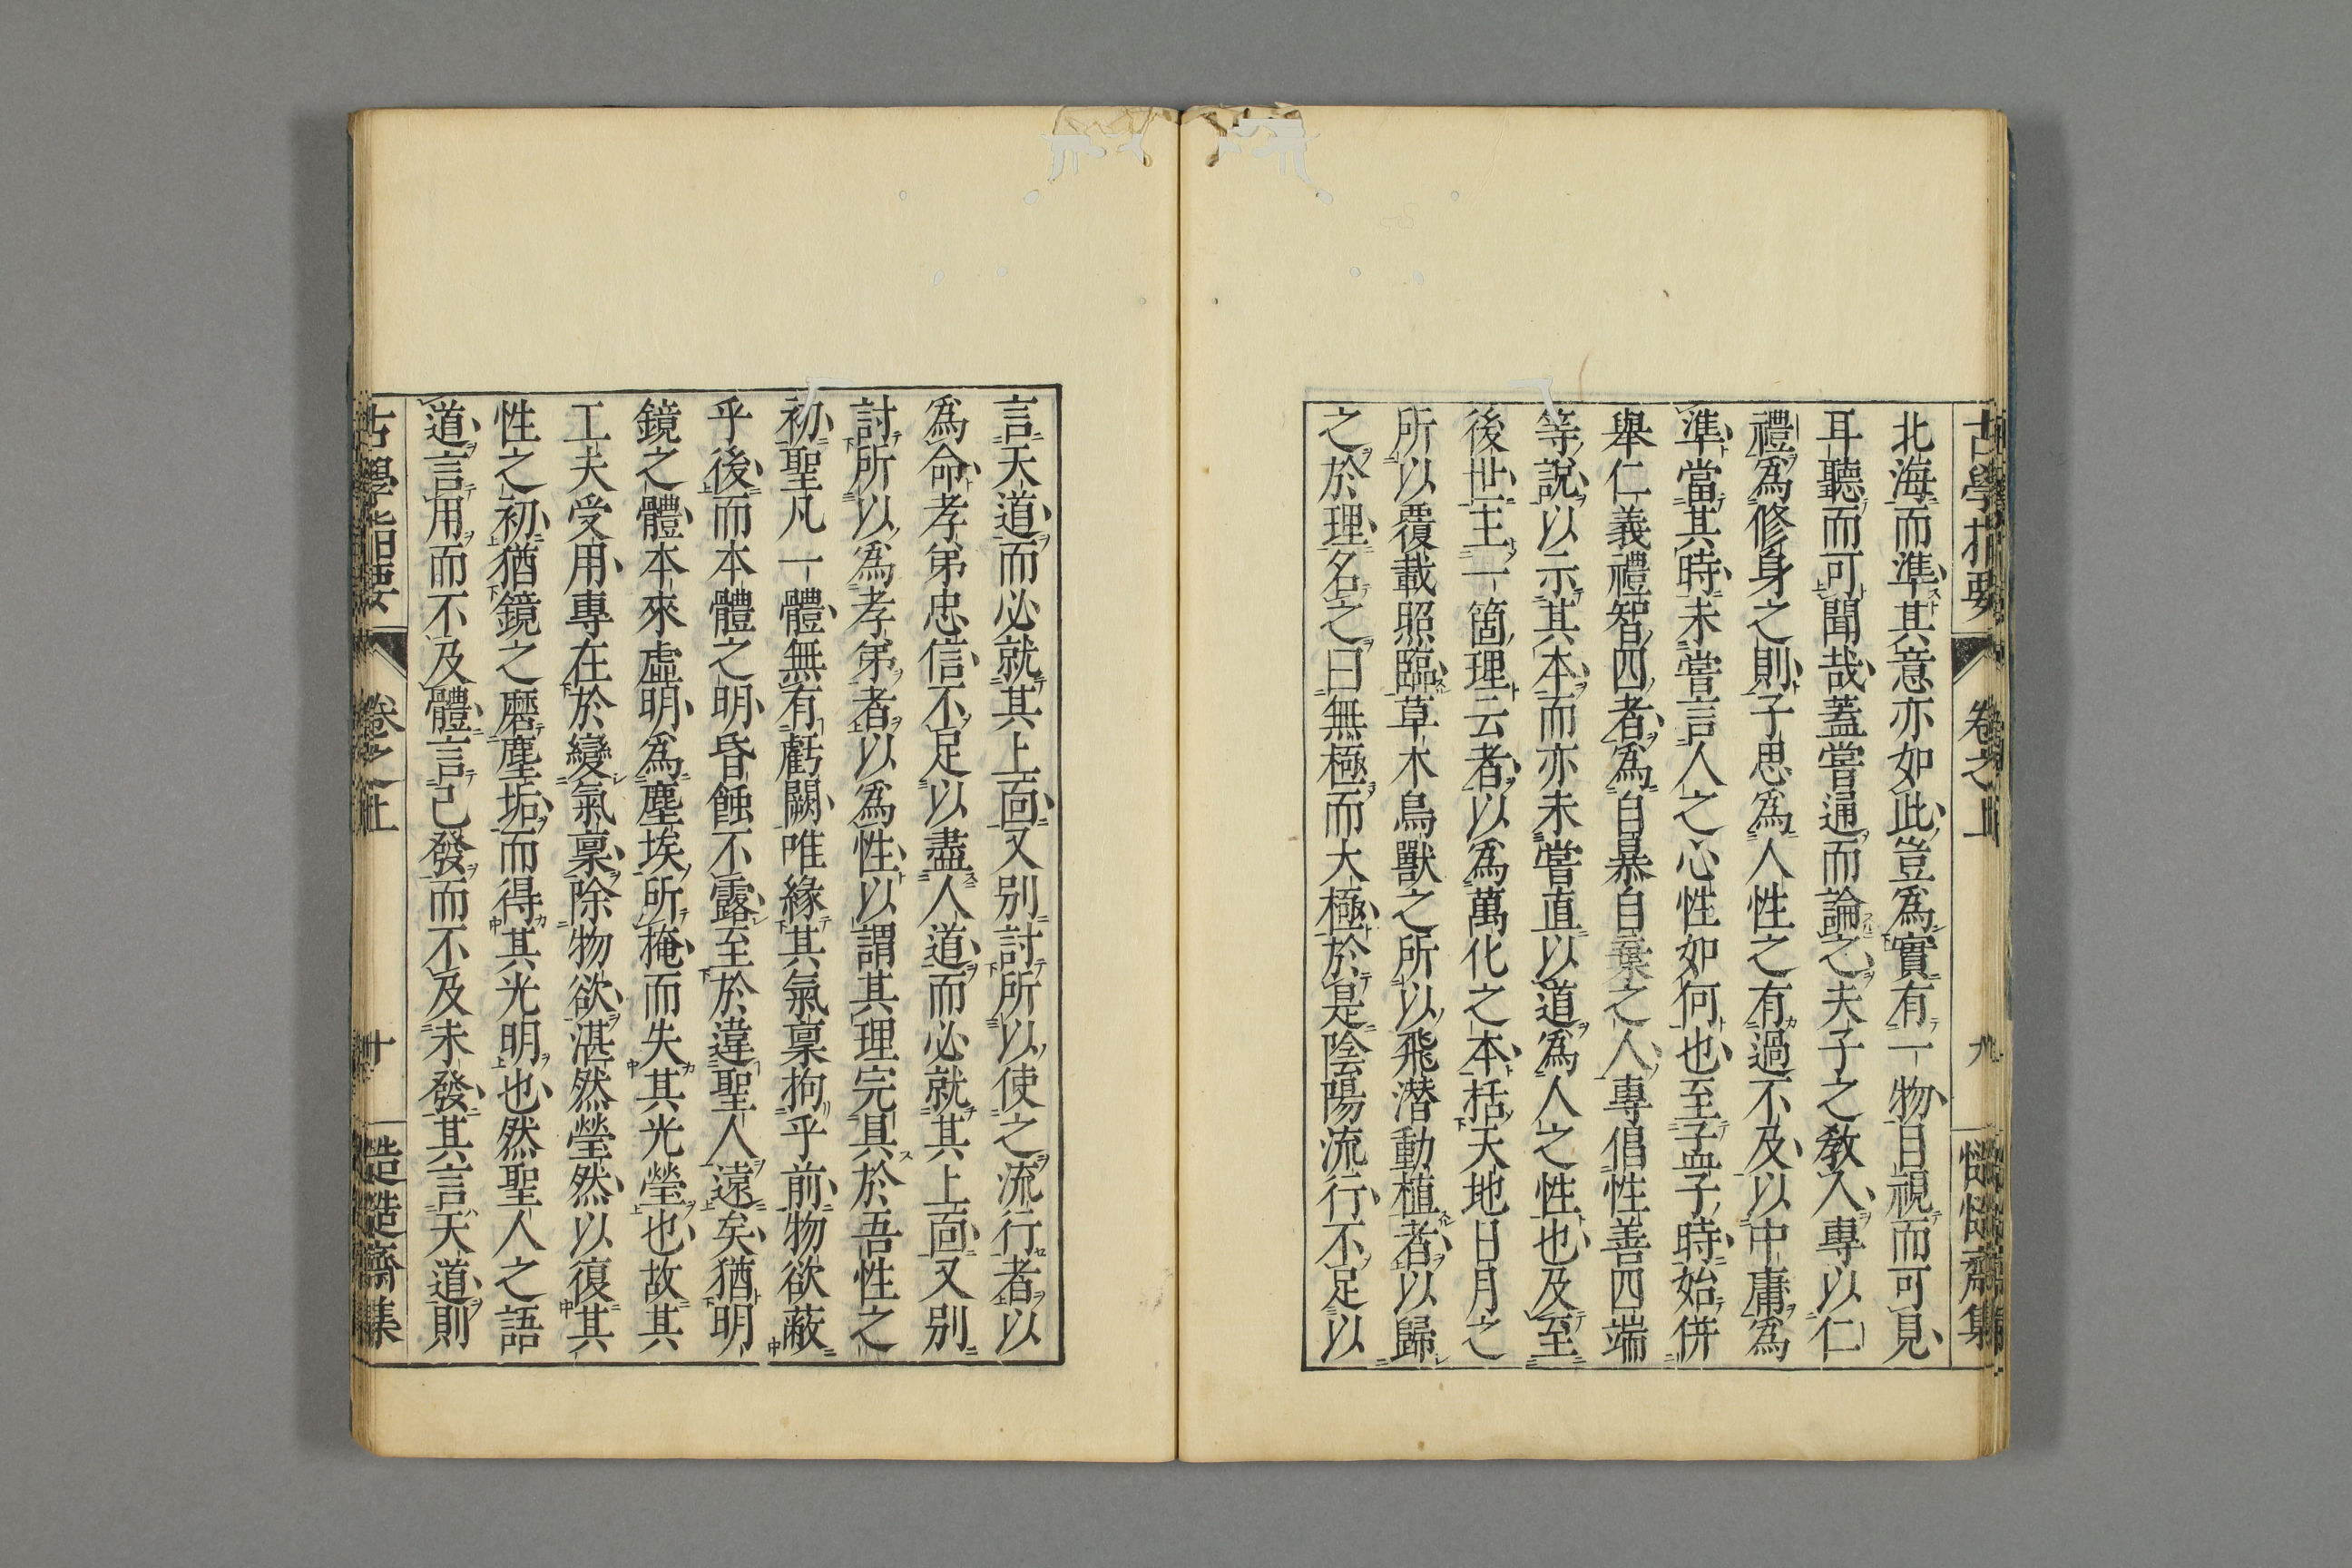 古學指要 卷之上 九 慥慥齋集
北海而準其意亦如此豈爲實有一物目視而可見
耳聽而可聞哉蓋嘗通而論之夫子之敎人專以仁
禮爲修身之則子思爲人性之有過不及以中庸爲
準當其時未嘗言人之心性如何也至孟子時始併
舉仁義禮智四者爲自暴自棄之人專倡性善四端
等說以示其本而亦未嘗直以道爲人之性也及至
後世主一箇理云者以爲萬化之本括天地日月之
所以覆載照臨草木鳥獸之所以飛潜動植者以歸
之於理名之曰無極而大極於是陰陽流行不足以
言天道而必就其上面又別討所以使之流行者以
爲命孝弟忠信不足以盡人道而必就其上面又別
討所以爲孝弟者以爲性以謂其理完具於吾性之
初聖凡一體無有虧闕唯緣其氣稟拘乎前物欲蔽
乎後而本體之明昏蝕不露至於違聖人遠矣猶明
鏡之體本來虛明爲塵埃所掩而失其光瑩也故其
工夫受用專在於變氣稟除物欲湛然瑩然以復其
性之初猶鏡之磨塵垢而得其光明也然聖人之語
道言用而不及體言已發而不及未發其言天道則
古學指要 卷之上 十 慥慥齋集